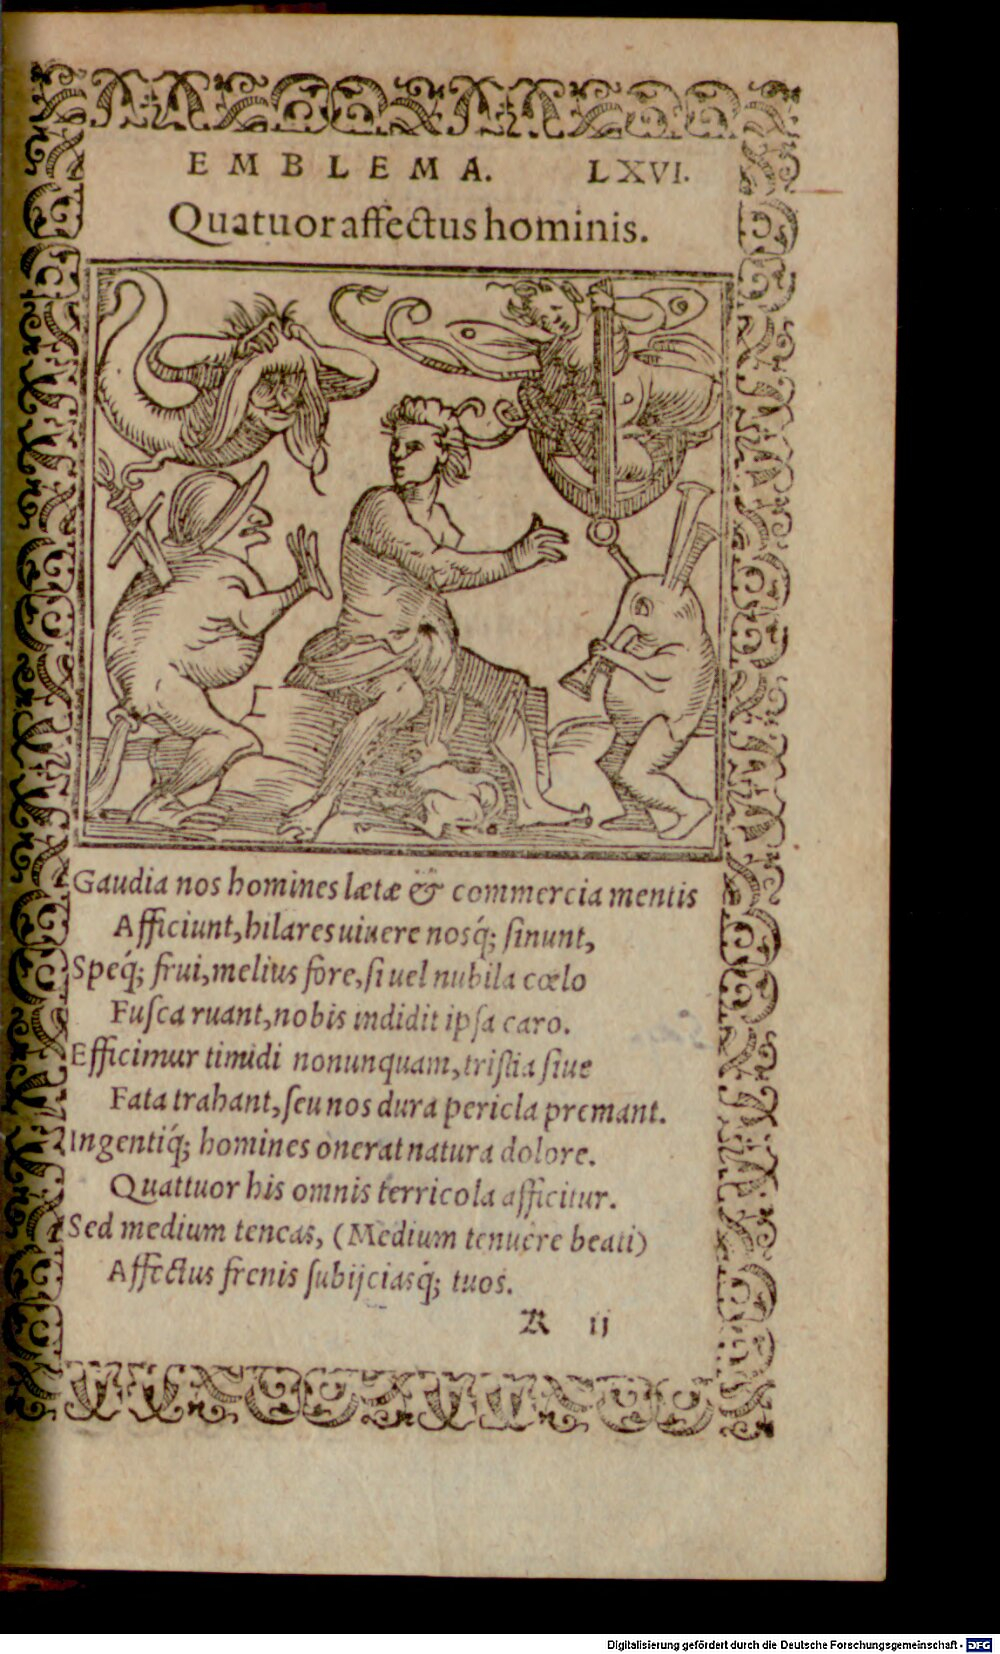 EMBLEMA. LXVI.
Quatuor affectus hominis.
Gaudia nos homines lætæ & commercia mentis
Afficiunt, hilares uiuere nosq́; sinunt,
Speq́; frui, melius fore, si uel nubila cœlo
Fusca ruant, nobis indidit ipsa caro.
Efficimur timidi nonunquam, tristia siue
Fata trahant, seu nos dura pericla premant.
Ingentiq́; homines onerat natura dolore.
Quattuor his omnis terricola afficitur.
Sed medium teneas, (Medium tenuêre beati)
Affectus frenis subijciasq́; tuos.
ij
Digitalisierung gefördert durch die Deutsche Forschungsgemeinschaft - DFG